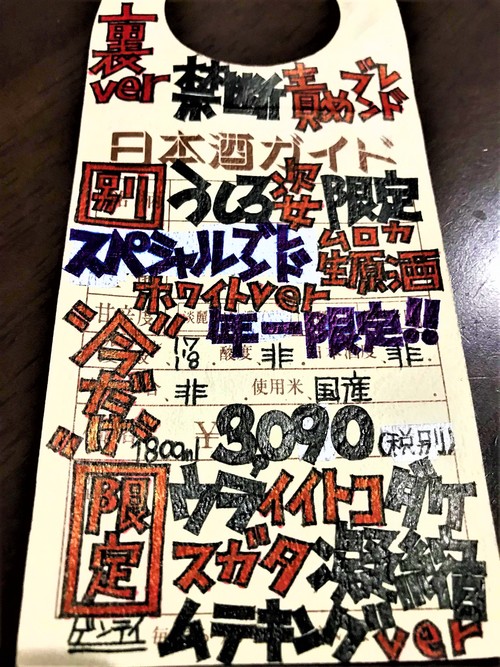 裏ver 禁断責めブレンド
日本酒ガイド
別 うしろ姿限定
スペシャルブレンド ムロカ生原酒
ホワイトver
甘辛度 淡麗
年一限定!!
"今だけ"
17/18 酸度 非 日本酒度 非
非 使用米 国産
1800ml ¥3,090(税別)
限定 ウライイトコダケ
スガタ凝縮
ゲンテイ ムテキングver